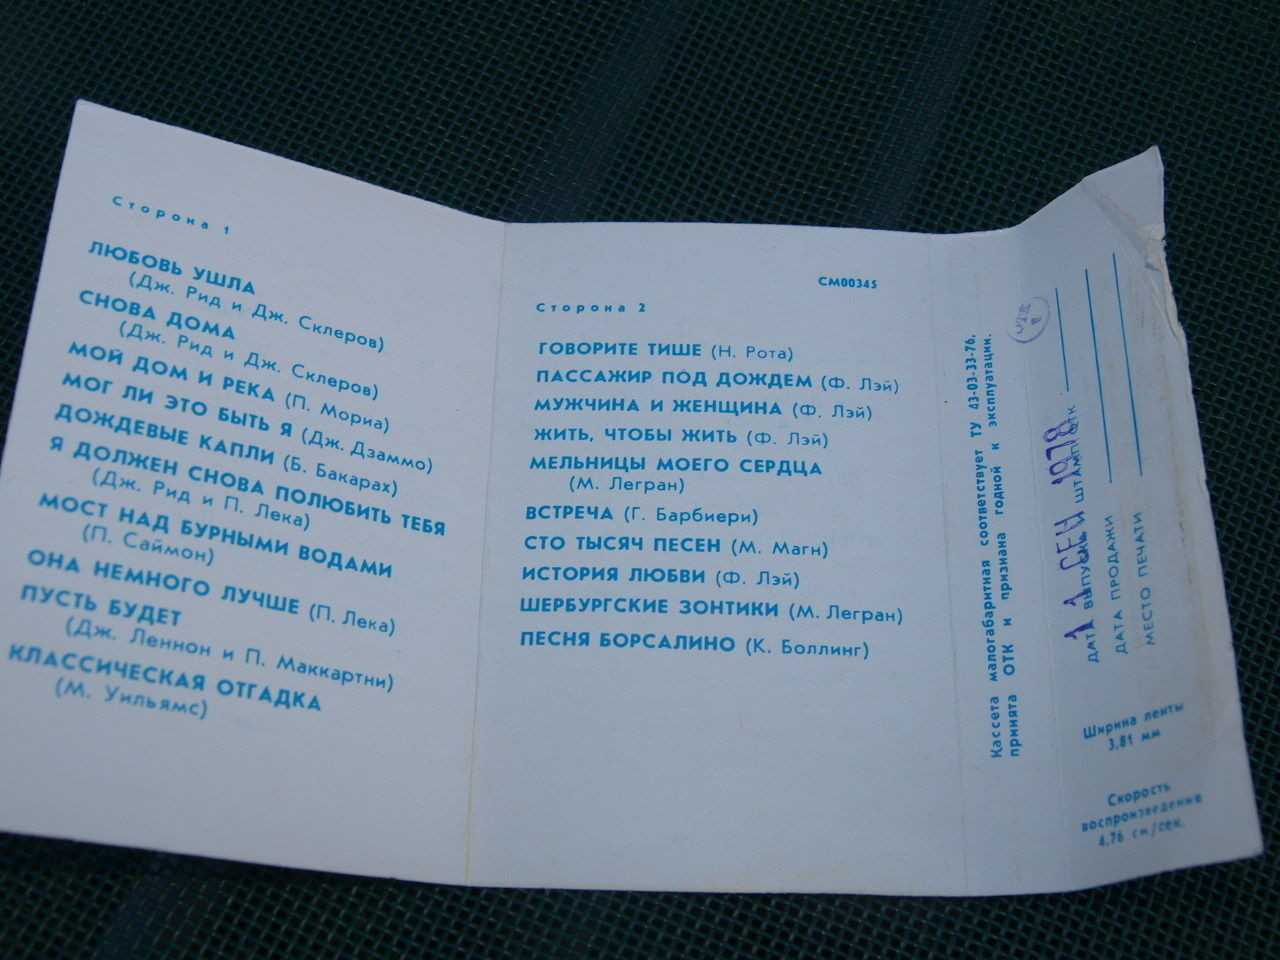 Сторона 1
ЛЮБОВЬ УШЛА
(Дж. Рид и Дж. Склеров)
СНОВА ДОМА
(Дж. Рид и Дж. Склеров)
МОЙ ДОМ И РЕКА (П. Мориа)
МОГ ЛИ ЭТО БЫТЬ Я (Дж. Дзаммо)
ДОЖДЕВЫЕ КАПЛИ (Б. Бакарах)
Я ДОЛЖЕН СНОВА ПОЛЮБИТЬ ТЕБЯ
(Дж. Рид и П. Лека)
МОСТ НАД БУРНЫМИ ВОДАМИ
(П. Саймон)
ОНА НЕМНОГО ЛУЧШЕ (П. Лека)
ПУСТЬ БУДЕТ
(Дж. Леннон и П. Маккартни)
КЛАССИЧЕСКАЯ ОТГАДКА
(М. Уильямс)
СМ00345
Сторона 2
ГОВОРИТЕ ТИШЕ (Н. Рота)
ПАССАЖИР ПОД ДОЖДЕМ (Ф. Лэй)
МУЖЧИНА И ЖЕНЩИНА (Ф. Лэй)
ЖИТЬ, ЧТОБЫ ЖИТЬ (Ф. Лэй)
МЕЛЬНИЦЫ МОЕГО СЕРДЦА
(М. Легран)
ВСТРЕЧА (Г. Барбиери)
СТО ТЫСЯЧ ПЕСЕН (М. Магн)
ИСТОРИЯ ЛЮБВИ (Ф. Лэй)
ШЕРБУРГСКИЕ ЗОНТИКИ (М. Легран)
ПЕСНЯ БОРСАЛИНО (К. Боллинг)
Кассета малогабаритная соответствует ТУ 43-03-33-76,
принята ОТК и признана годной к эксплуатации.
11 СЕН 1978
ДАТА ВЫПУСКА И ШТАМП ОТК
ДАТА ПРОДАЖИ
МЕСТО ПЕЧАТИ
Ширина ленты
3,81 мм
Скорость
воспроизведения
4,76 см/сек.